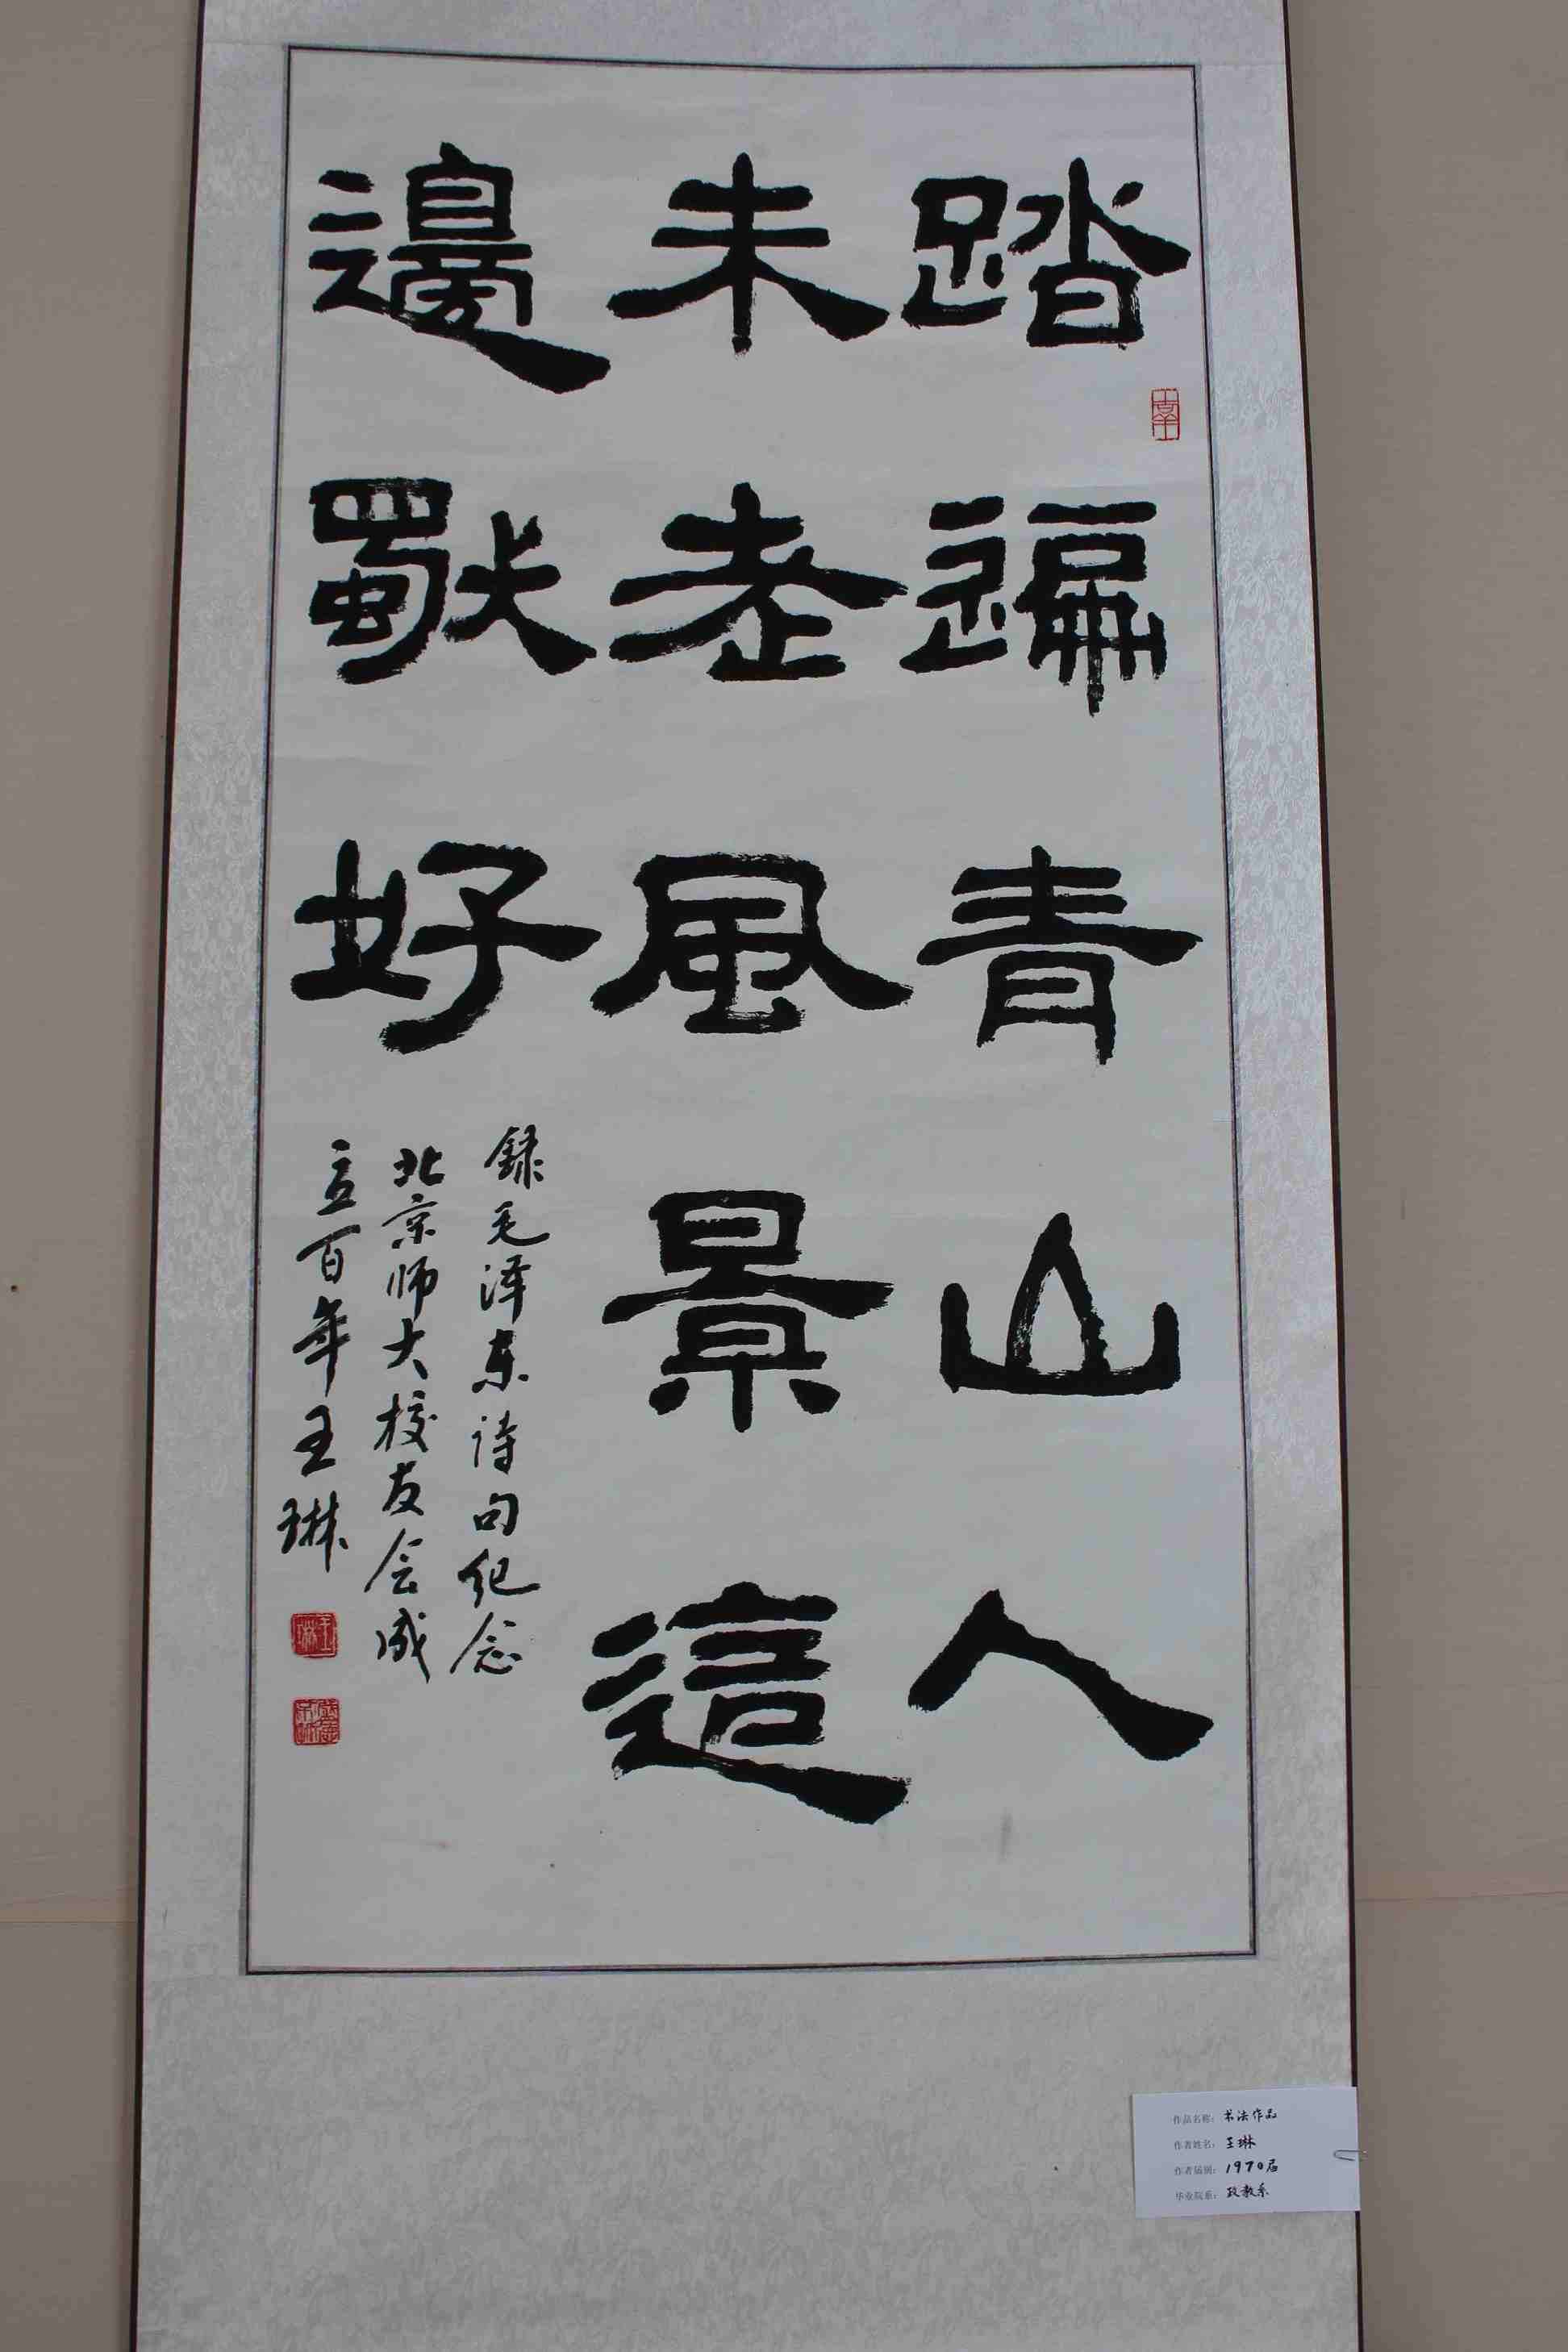 踏遍青山人
未老風景這
邊獨好
録毛泽东诗句纪念
北京师大校友会成
立百年王琳
王琳
作品名称：书法作品
作者姓名：王琳
作者届别：1970届
毕业院系：政教系